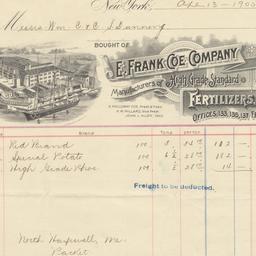 New York, Apr 13 - 190
Messrs Wm C & C S Dunning
BOUGHT OF
E. FRANK COE COMPANY
Manufacturers of High Grade Standard
FERTILIZERS
OFFICES, 133, 135, 137, F
E. HOLLOWAY COE, Prest & Treas.
John L. Alley, Secy.
Brand
Red Brand 100
Special Potato 100 182
High Grade Phos. 100 ½ 28 14
Freight to be deducted.
North Harpswell, Me.
Packet